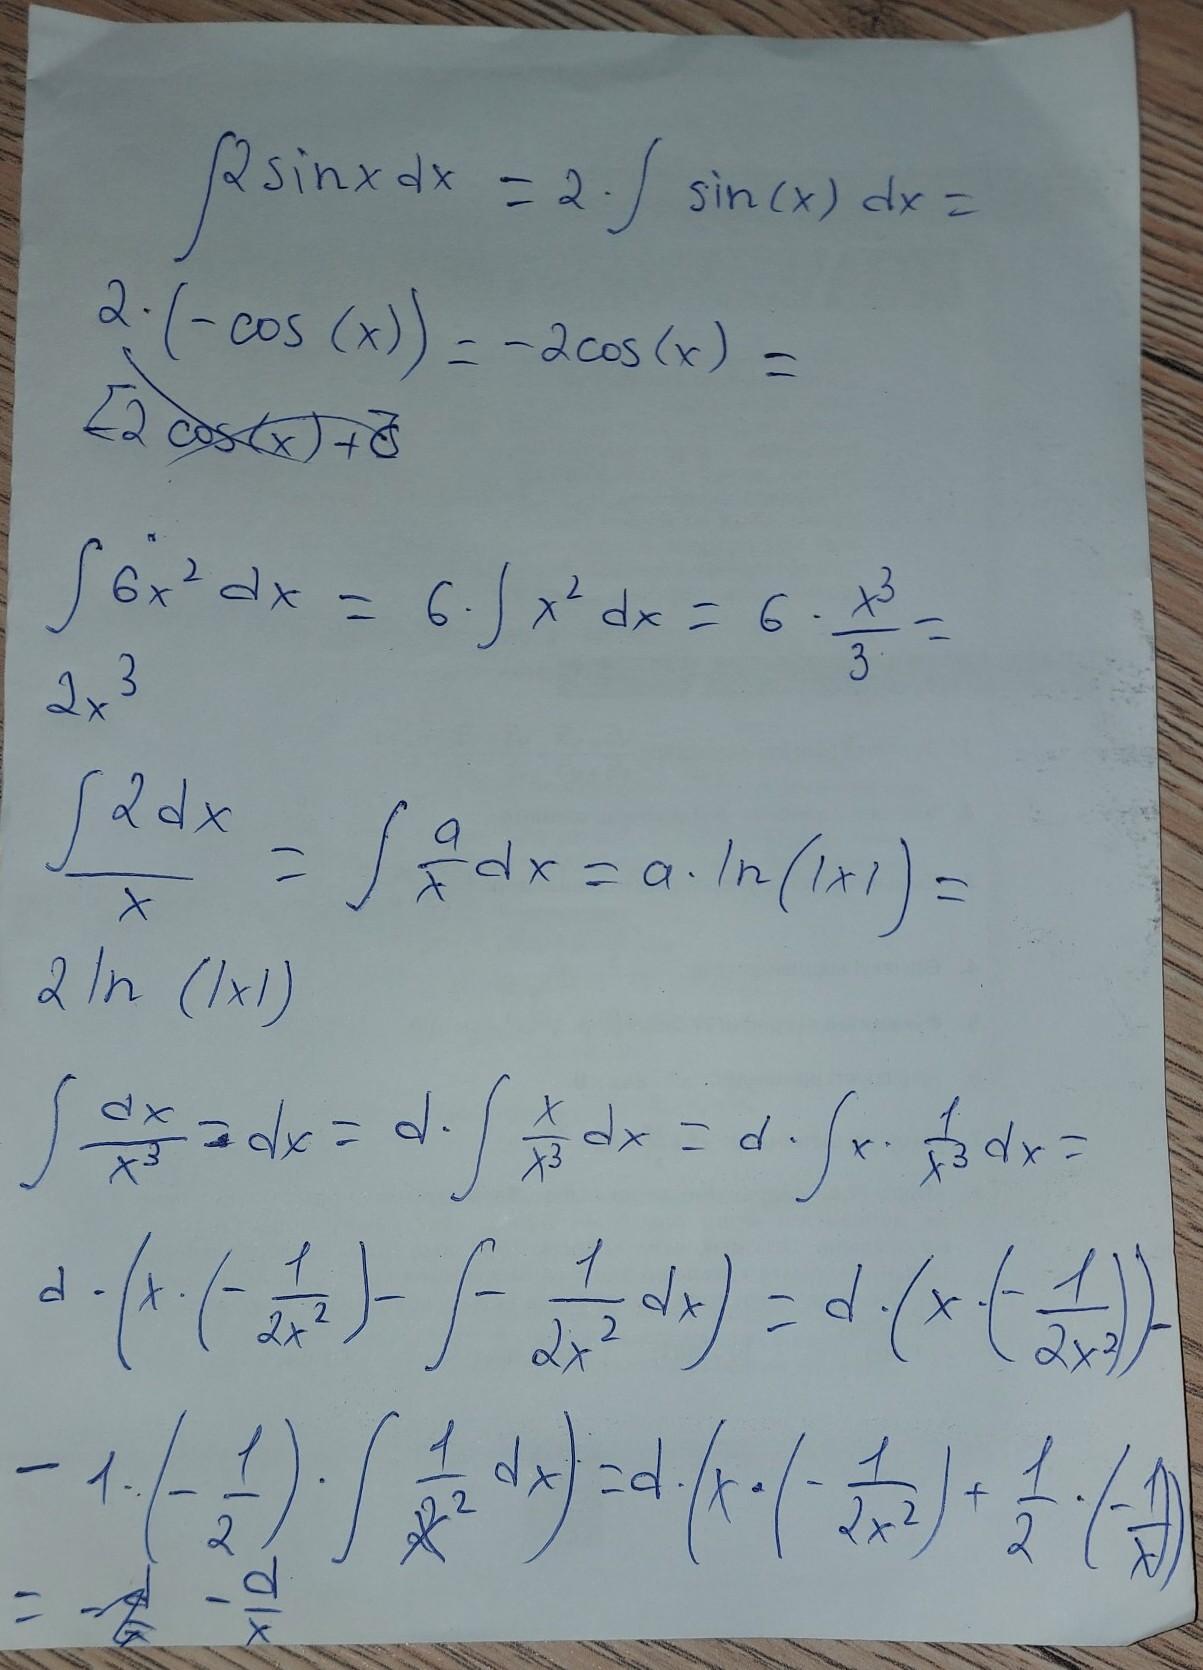 ∫2sinxdx = 2·∫ sin(x) dx =
2·(-cos(x)) = -2cos(x) =
∫6x² dx = 6·∫x² dx = 6·x³/3 =
2x³
∫2dx/x = ∫a/x dx = a·ln(|x|) =
2ln(|x|)
∫dx/x³ = dx = d·∫x/x³ dx = d·∫x·1/x³ dx =
d·(x·(-1/2x²)-∫-1/2x² dx) = d·(x·(-1/2x²))-
-1·(-1/2)·∫1/x² dx) = d·(x·(-1/2x²)+1/2·(-1/x))
= -d/x